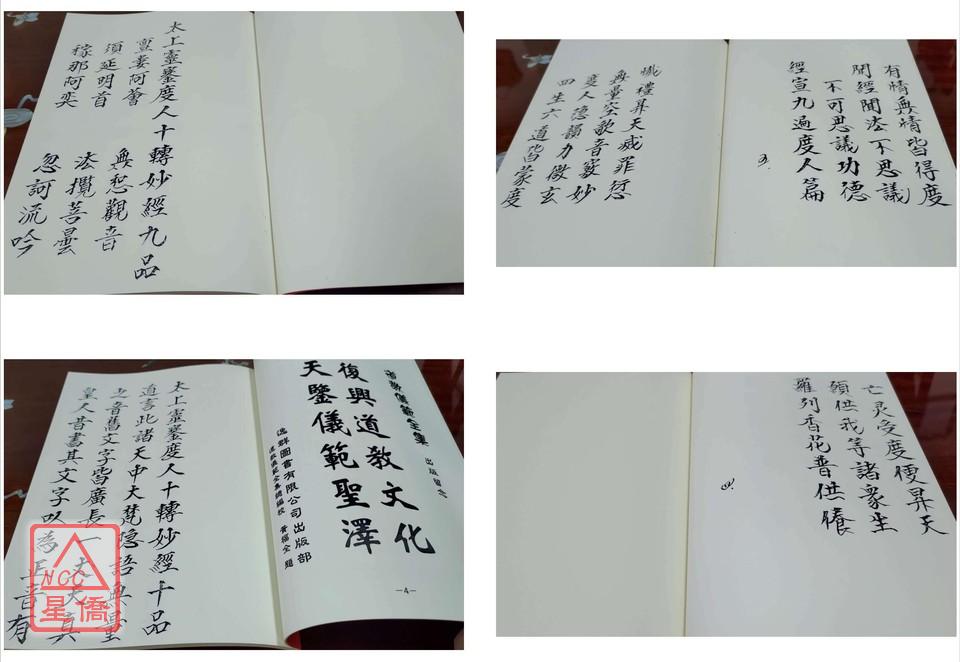 太上靈寶度人十轉妙經九品
亶婁阿薈 無惒觀音
須延明首 法攬菩曇
稼那阿奕 忽訶流吟
有情無情皆得度
聞經聞法不思議
不可思議功德
經宣九過度人篇
懺禮昇天滅罪愆
無量空歌音竅妙
度人德韻力微玄
四生六道皆蒙度
太上靈寶度人十轉妙經十品
道言此諸天中大梵隱語無量
之音舊文字皆廣長一丈天真
皇人昔書其文字以為正音有
道教儀範全集 出版留念
復興道教文化
天鑒儀範聖澤
逸群圖書有限公司出版部
道教儀範全集總編校 黃福全 題
—4—
亡灵受度便昇天
願供我等諸衆生
羅列香花普供養
NCC
星僑